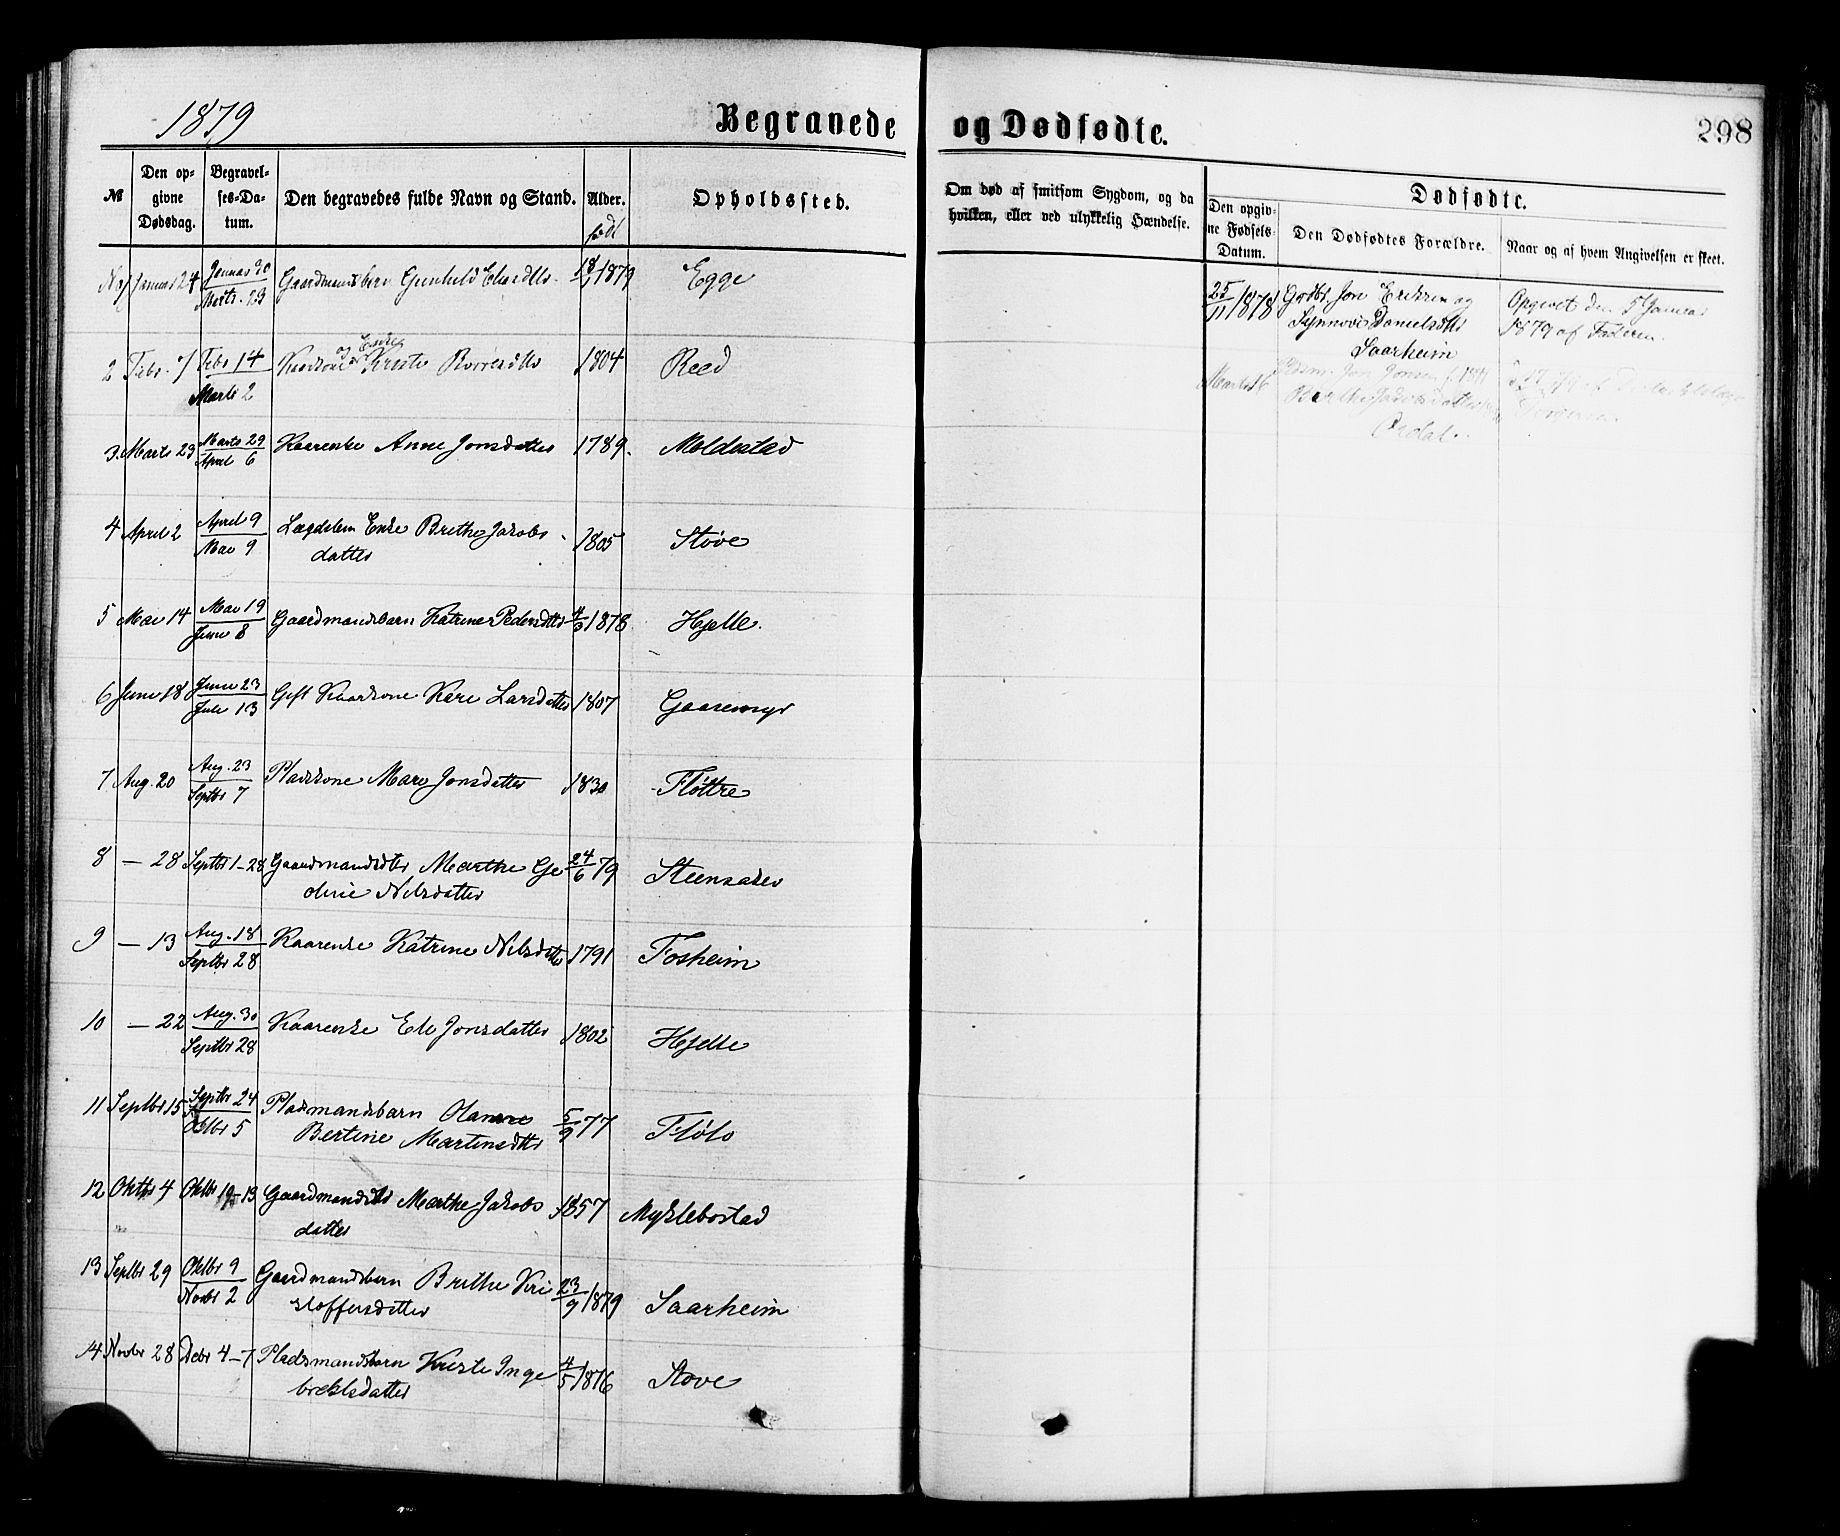 1879
Begravede og Dødfødte.
298
№
Den opgivne Dødsdag.
Begravelses-Datum.
Den begravedes fulde Navn og Stand.
Alder.
født
Opholdssted.
Om død af smitsom Sygdom, og da hvilken, eller ved ulykkelig Hændelse.
Dødfødte.
Den opgivne Fødsels-Datum.
Den Dødfødtes Forældre.
Naar og af hvem Angivelsen er skeet.
No 1 Januar 24 Januar 30 / Marts 23 Gaardmandsbarn Gunhild 18/1 1879 Egge
2 Febr. 7 Febr 14 / Marts 2 Kaarkone og Enke Kriste 1804 Reed
3 Marts 23 Marts 29 / April 6 Kaarenke Anne Jonsdatter 1789. Moldestad
4 April 2 April 9 / Mai 9 Lægdslem Enke Brithe Jakobs
datter 1805 Støve
5 Mai 14 Mai 19 / Juni 8 Gaardmandsbarn Katrine Pedersdtter 4/6 1878 Hjelle.
6 Juni 18 Juni 23 / Juli 13 Gift Kaarkone Kari Larsdatter 1807 Gaasemyr
7 Aug. 20 Aug. 23 / Septbr 7 Pladskone Mari Jonsdatter 1830 Fløttre
8 — 28 Septbr 1-28 Gaardmandsdtr Marthe Ge
oline Nilsdatter 24/6 79 Steensaker
9 — 13 Aug. 18 / Septbr 28 Kaarenke Katrine Nilsdatter 1791 Fosheim
10 — 22 Aug. 30 / Septbr 28 Kaarenke Eli Jonsdatter 1802 Hjelle
11 Septbr 15 Septbr 24 / Oktbr 5 Pladsmandsbarn
Bertine Martinsdtter 5/9 77 Fløto
12 Oktbr 4 Oktbr 10-13 Gaardmandsdtr Marthe Jakobs
datter 1857 Myklebostad
13 Septbr 29 Oktbr 9 / Novbr 2 Gaardmandsbarn Brithe Kri
stoffersdatter 23/9 1879 Saarheim
14 Novbr 28 Debr 4-7 Pladsmandsbarn Kriste Inge
brektsdatter 4/5 1876 Støve
25/11 1878 Grdbr. Jon Eriksen og
Synnøve Danielsdtter
Saarheim
Opgivet den 5 Januar
1879 af Faderen.
Marts 16 Pladsm. Jon Jonsen f. 1841
Berthe Jakobsdatter
Ordal.